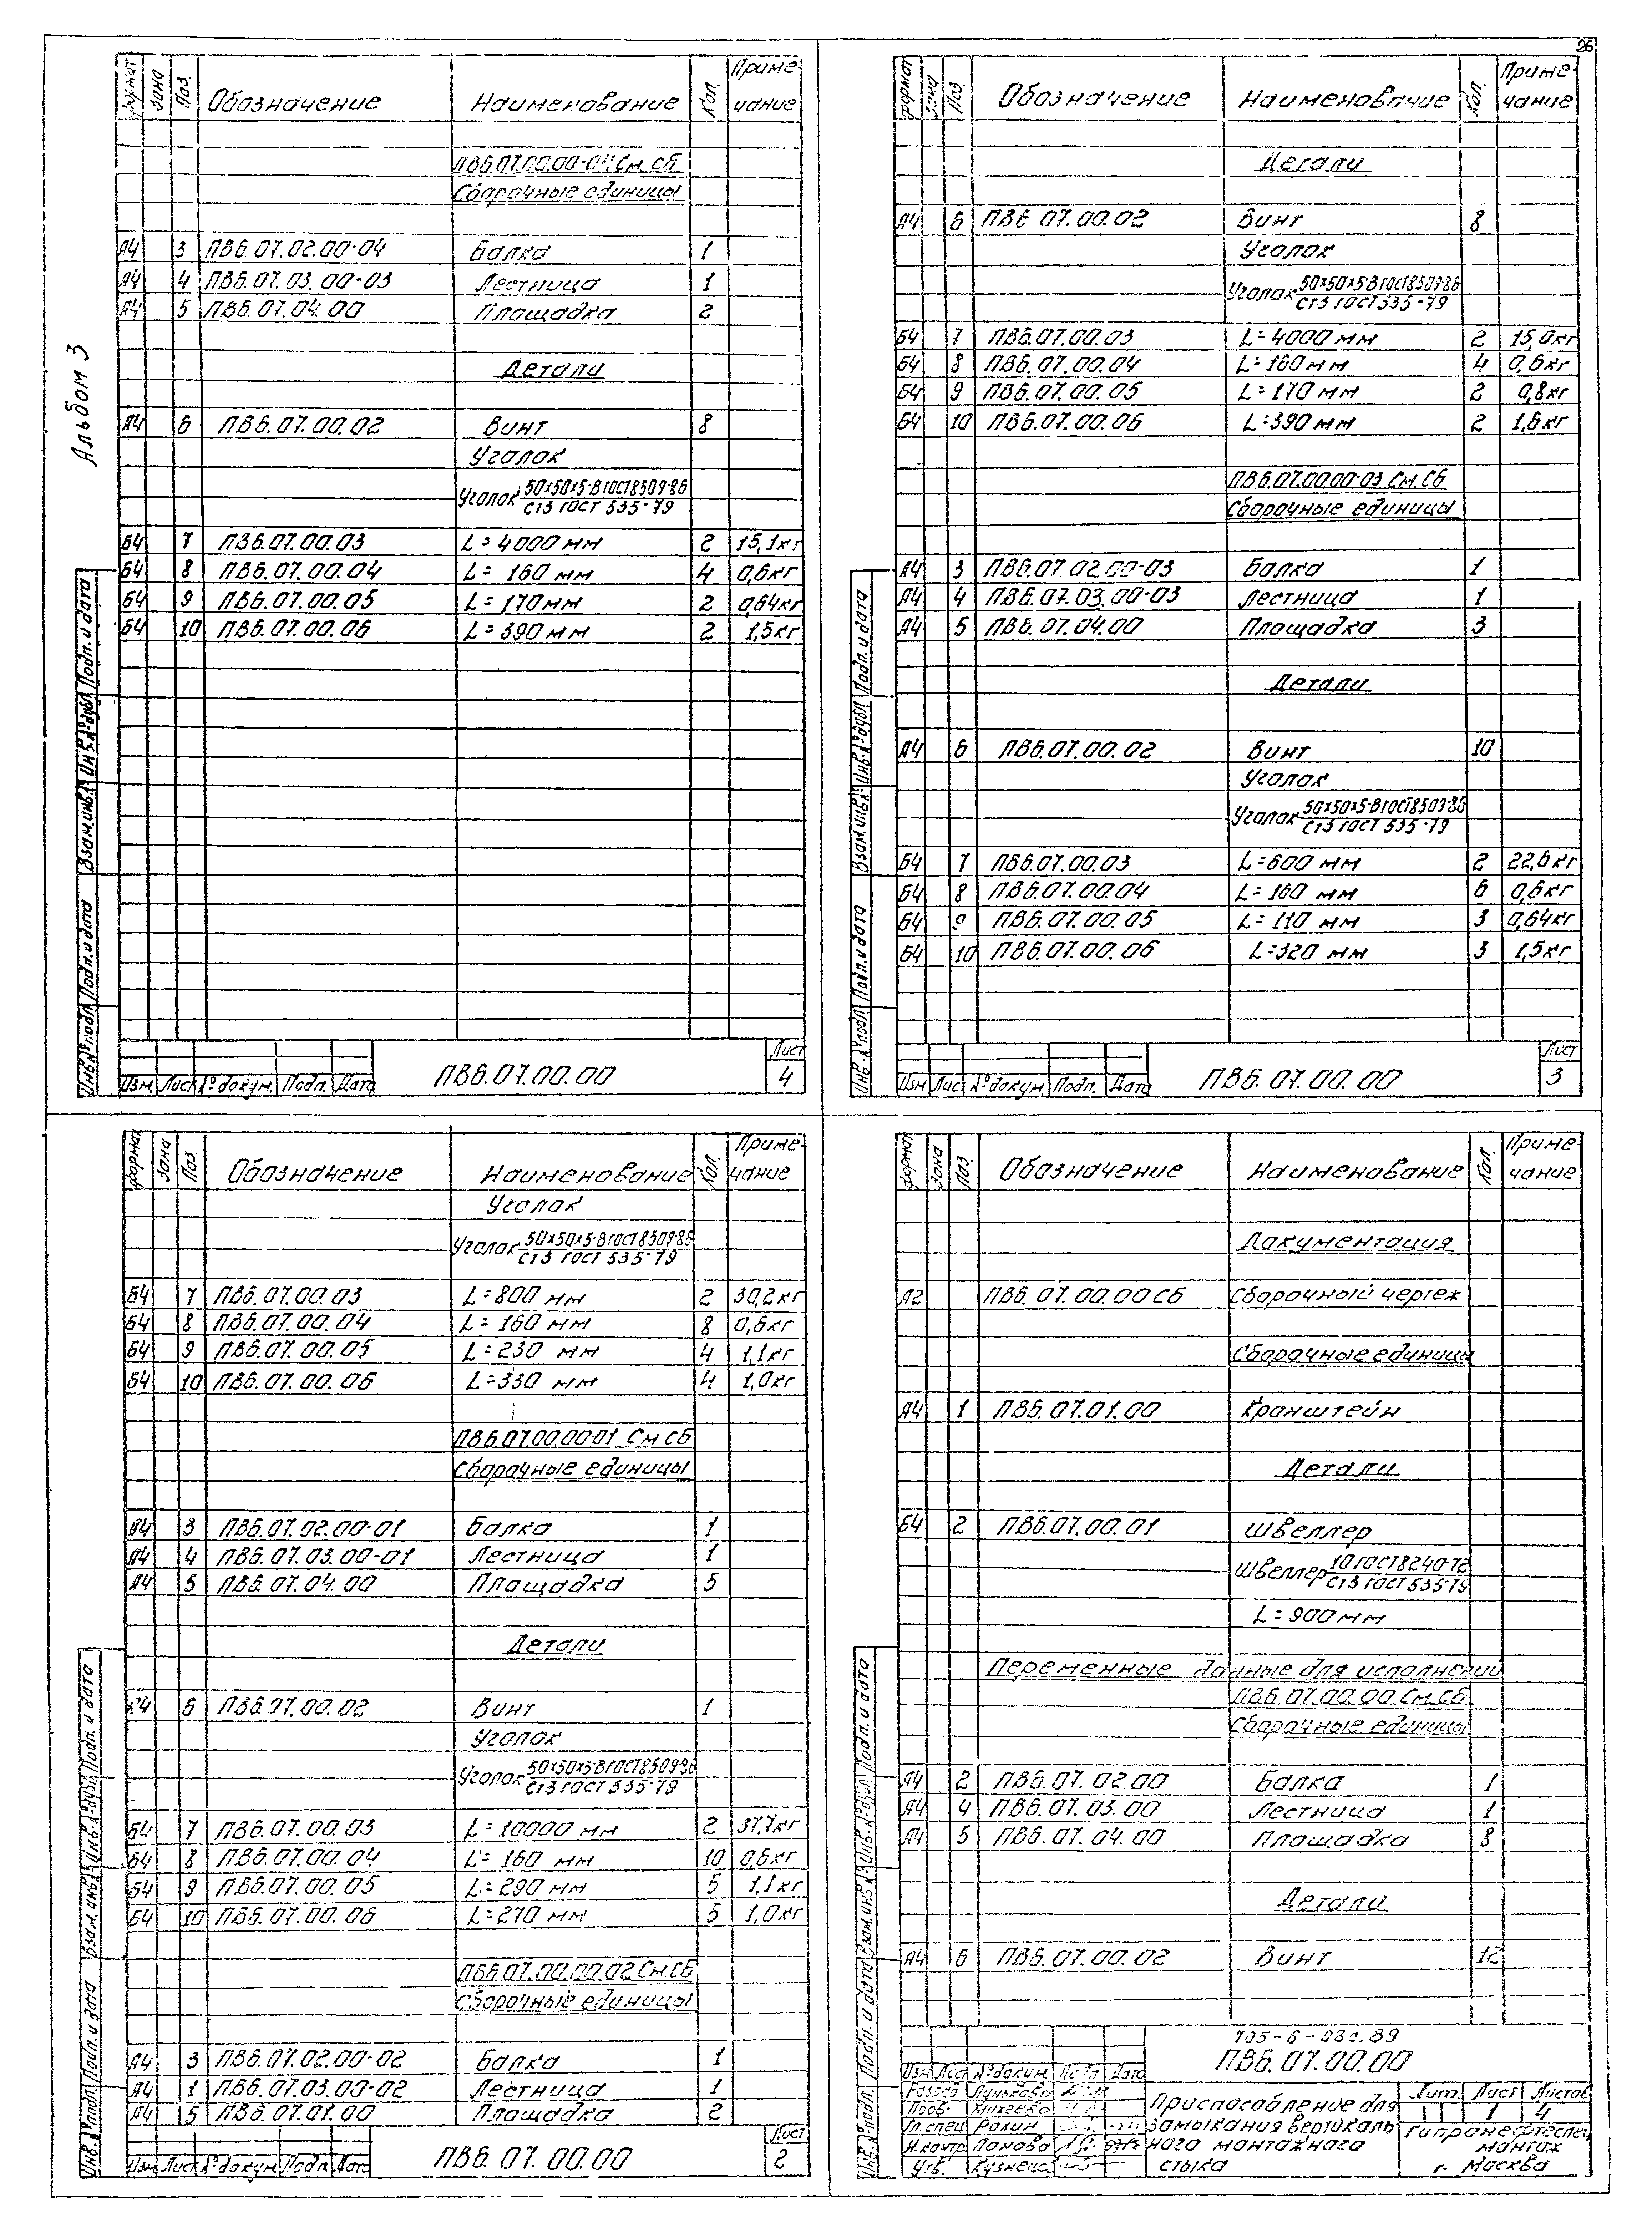 26
Альбом 3
Формат Зона Поз. Обозначение Наименование Кол. Примечание
ПВ6.07.00.00-04 См. СБ
Сборочные единицы
А4 3 ПВ6.07.02.00-04 Балка 1
А4 4 ПВ6.07.03.00-03 Лестница 1
А4 5 ПВ6.07.04.00 Площадка 2
Детали
А4 6 ПВ6.07.00.02 Винт 8
Уголок
Уголок 50х50х5-В ГОСТ 8509-86
Ст3 ГОСТ 535-79
Б4 7 ПВ6.07.00.03 L=4000 мм 2 15,1кг
Б4 8 ПВ6.07.00.04 L=160 мм 4 0,6кг
Б4 9 ПВ6.07.00.05 L=170мм 2 0,64кг
Б4 10 ПВ6.07.00.06 L=390 мм 2 1,5кг
Изм. Лист № докум. Подп. Дата
ПВ6.07.00.00
Лист
4
Инв. № подл. Подп. и дата Взам. инв. № Инв. № дубл. Подп. и дата
Формат Зона Поз Обозначение Наименование Кол. Примечание
Детали
А4 6 ПВ6 07.00.02 Винт 8
Уголок
Уголок 50х50х5-В ГОСТ 8509-86
Ст3 ГОСТ 535-79
Б4 7 ПВ6.07.00.03 L=4000 мм 2 15,0кг
Б4 8 ПВ6.07.00.04 L=160мм 4 0,6кг
Б4 9 ПВ6.07.00.05 L=170 мм 2 0,8кг
Б4 10 ПВ6.07.00.06 L=390 мм 2 1,6кг
ПВ6.07.00.00-03 См. СБ
Сборочные единицы
А4 3 ПВ6.07.02.00-03 Балка 1
А4 4 ПВ6.07.03.00-03 Лестница 1
А4 5 ПВ6.07.04.00 Площадка 3
Детали
А4 6 ПВ6.07.00.02 Винт 10
Уголок
Уголок 50х50х5-В ГОСТ 8509-86
Ст3 ГОСТ 535-79
Б4 7 ПВ6.07.00.03 L=600 мм 2 22,6кг
Б4 8 ПВ6.07.00.04 L=160 мм 6 0,6кг
Б4 9 ПВ6.07.00.05 L=110 мм 3 0,64кг
Б4 10 ПВ6.07.00.06 L=320 мм 3 1,5кг
Изм Лист № докум. Подп. Дата
ПВ6.07.00.00
Лист
3
Инв. № подл Подп. и дата Взам. инв. № Инв. № дубл. Подп. и дата
Формат Зона Поз. Обозначение Наименование Кол. Примечание
Уголок
Уголок 50х50х5-В ГОСТ 8509-86
Ст3 ГОСТ 535-79
Б4 7 ПВ6.07.00.03 L=800 мм 2 30,2кг
Б4 8 ПВ6.07.00.04 L=160 мм 8 0,6кг
Б4 9 ПВ6.07.00.05 L=230 мм 4 1,1кг
Б4 10 ПВ6.07.00.06 L=330 мм 4 1,0кг
ПВ6.07.00.00-01 См СБ
Сборочные единицы
А4 3 ПВ6.07.02.00-01 Балка 1
А4 4 ПВ6.07.03.00-01 Лестница 1
А4 5 ПВ6.07.04.00 Площадка 5
Детали
А4 6 ПВ6.07.00.02 Винт 1
Уголок
Уголок 50х50х5-В ГОСТ 8509-86
Ст3 ГОСТ 535-79
Б4 7 ПВ6.07.00.03 L=10000 мм 2 37,7кг
Б4 8 ПВ6.07.00.04 L=160 мм 10 0,6кг
Б4 9 ПВ6.07.00.05 L=290 мм 5 1,1кг
Б4 10 ПВ6.07.00.06 L=270 мм 5 1,0кг
ПВ6.07.00.00-02 См. СБ
Сборочные единицы
А4 3 ПВ6.07.02.00-02 Балка 1
А4 1 ПВ6.07.03.00-02 Лестница 1
А4 5 ПВ6.07.01.00 Площадка 2
Изм Лист № докум Подп. Дата
ПВ6.07.00.00
Лист
2
Инв. № подл. Подп. и дата Взам. инв. № Инв. № дубл. Подп. и дата
Формат Зона Поз. Обозначение Наименование Кол. Примечание
Документация
А2 ПВ6.07.00.00 СБ Сборочный чертеж
Сборочные единицы
А4 1 ПВ6.07.01.00 Кранштейн
Детали
Б4 2 ПВ6.07.00.01 Швеллер
Швеллер 10 ГОСТ 8240-72
Ст3 ГОСТ 535-79
L=900мм
Переменные данные для исполнений
ПВ6.07.00.00 См. СБ
Сборочные единицы
А4 2 ПВ6.07.02.00 Балка 1
А4 4 ПВ6.07.03.00 Лестница 1
А4 5 ПВ6.07.04.00 Площадка 8
Детали
А4 6 ПВ6.07.00.02 Винт 12
ПВ6.07.00.00
Изм Лист № докум. Дата
Гл. спец Рахин
Н.контр Панова
Утв. Кузнецов
Приспособление для
замыкания вертикаль
ного монтажного
стыка
Лит. Лист Листов
1 4
Гипронефтеспец
монтаж
г. Москва
Инв. № подл. Подп. и дата Взам. инв. № Инв. № дубл. Подп. и дата